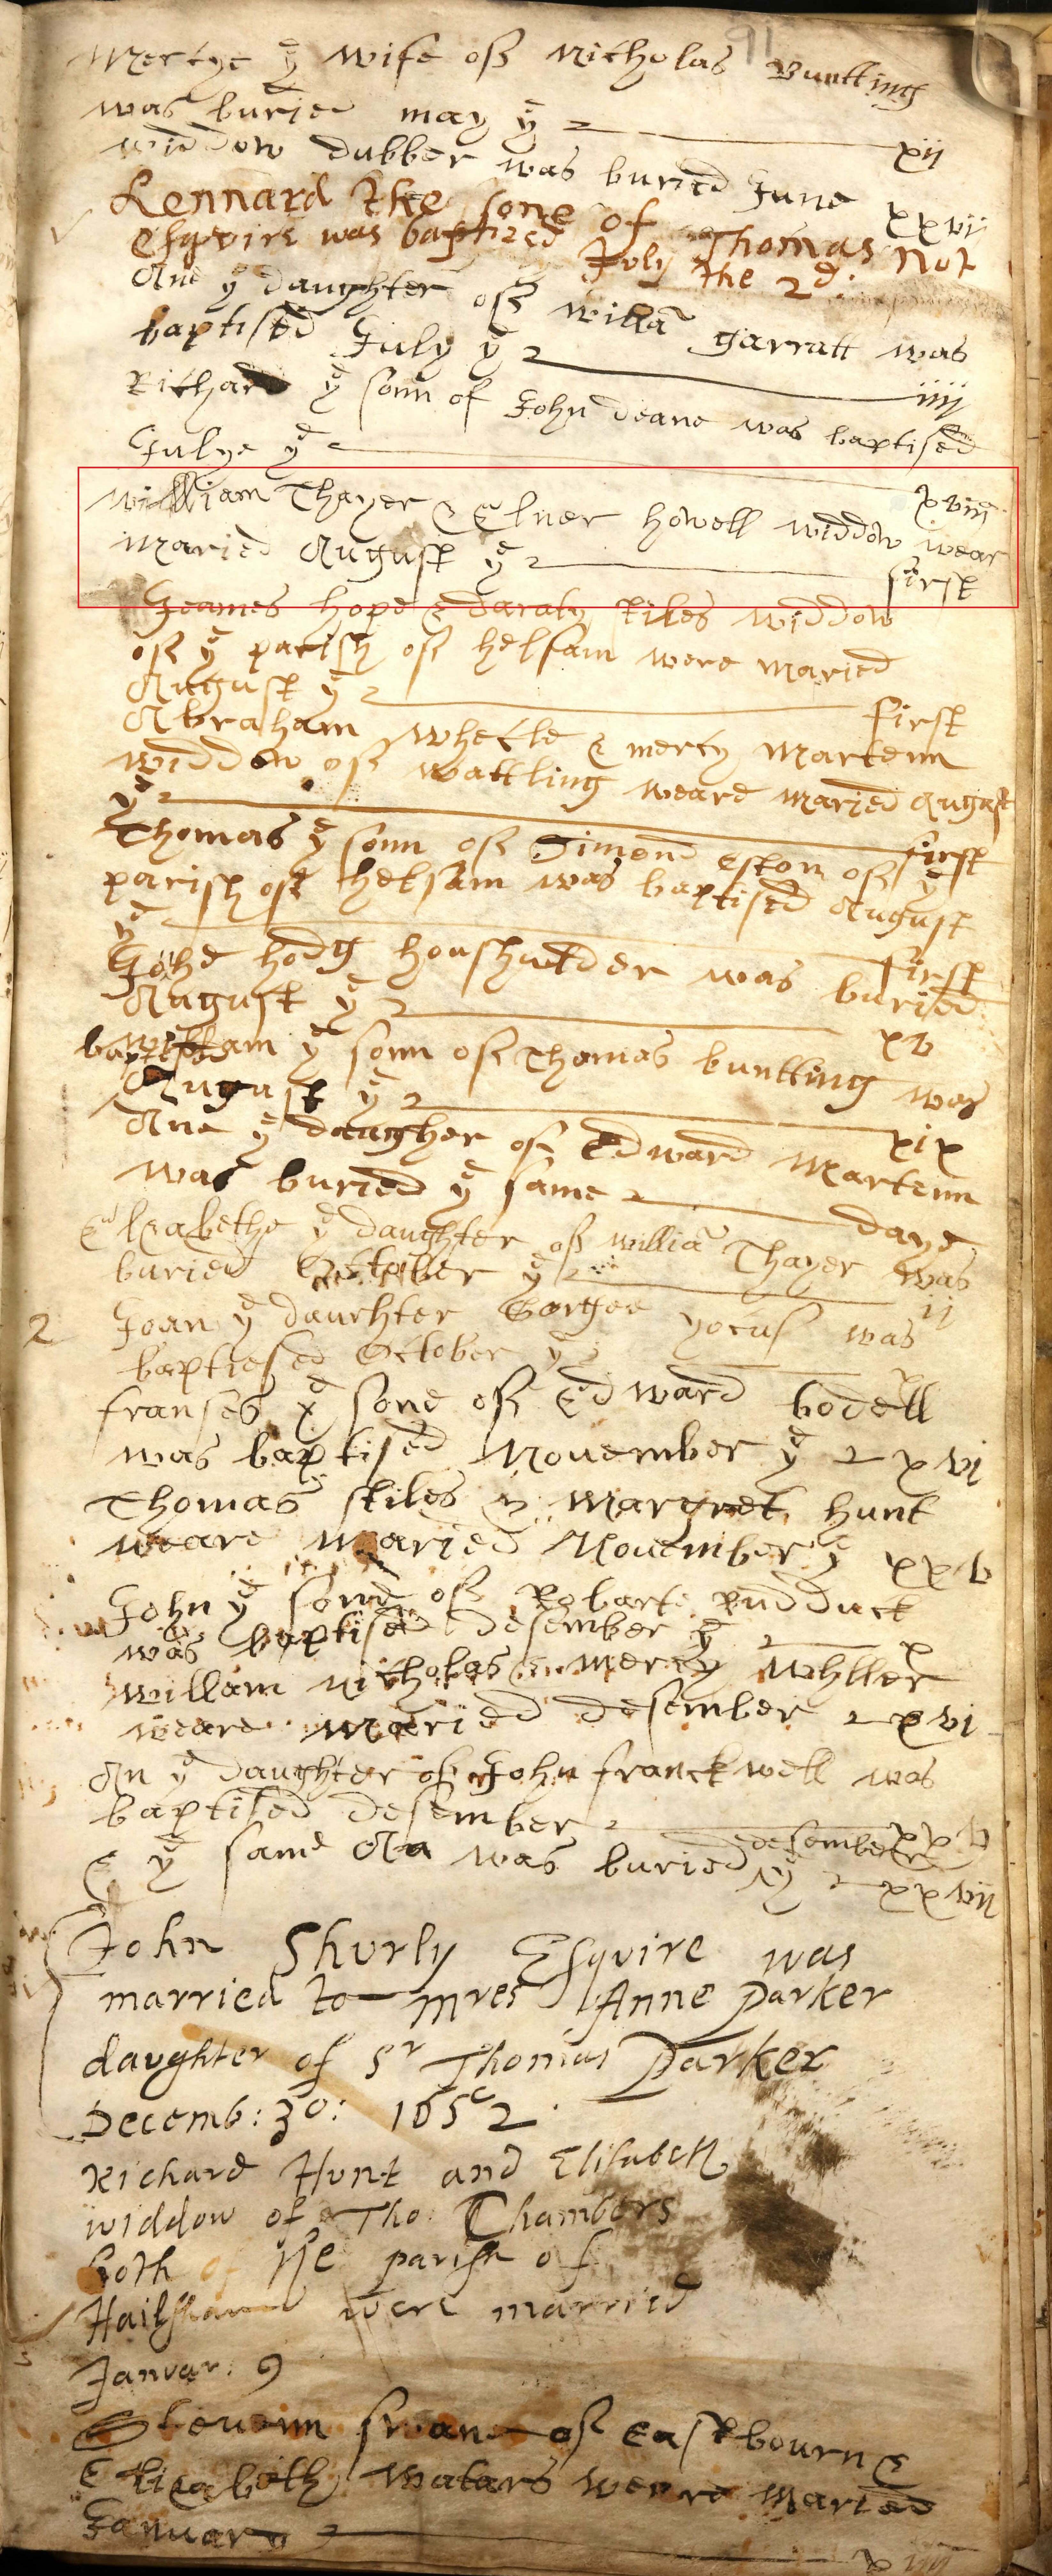 91
Mercye yͤ wife of Nicholas Buntting
was buried may yͤ xij
widdow dubber was buried June xxvij
Lennard the sone of Thomas Not
Esqvire was baptized July the 2d:
Ane yͤ daughter of willā garratt was
baptised July yͤ iiij
Richard yͤ sonn of John deane was baptised
Julye yͤ xviij
william Thayer & Elner howell widdow wear
maried August yͤ first
Jeames hope & daraty stiles widdow
of yͤ parish of helsam were maried
August yͤ first
Abraham whetle & mercy Martenn
widdow of wattling weare maried August
yͤ first
Thomas yͤ sonn of Simond eston of yͤ
parish of helsam was baptised August
yͤ first
Johe hodg houshulder was buried
August yͤ xv
willam yͤ sonn of Thomas buntting was
baptised August yͤ xix
Ane yͤ daugher of Edward Martenn
was buried yͤ same daye
Elizabethe yͤ daughter of williā Thayer was
buried October yͤ ij
2 Joan yͤ daurhter Gorgee yocus was
baptiesed October yͤ
franses yͤ sone of Edward bodell
was baptised November yͤ xvi
Thomas stiles & Margret hunt
weare maried November yͤ xxv
John yͤ sone of Robarte Rudduck
was baptised desember yͤ x
willam nicholas & mercy whller
weare maried desember xvi
An yͤ daughter of John franckwell was
baptised desember xxv
& yͤ same An was buried desember yͤ xxvii
John Shurly Esqvire was
married to mres Anne Parker
davghter of Sr Thomas Parker
Decemb: 30: 1652.
Richard Hunt and Elisabeth
widdow of Tho: Chambers
both of the parish of
Hailsham were married
Janvar: 9
Stevenn swane of eastbourn &
Elizabeth watars weare maried
January